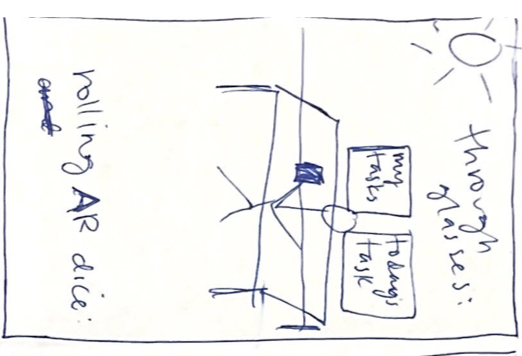 through
glasses:
my
tasks
today's
task
rolling AR dice: